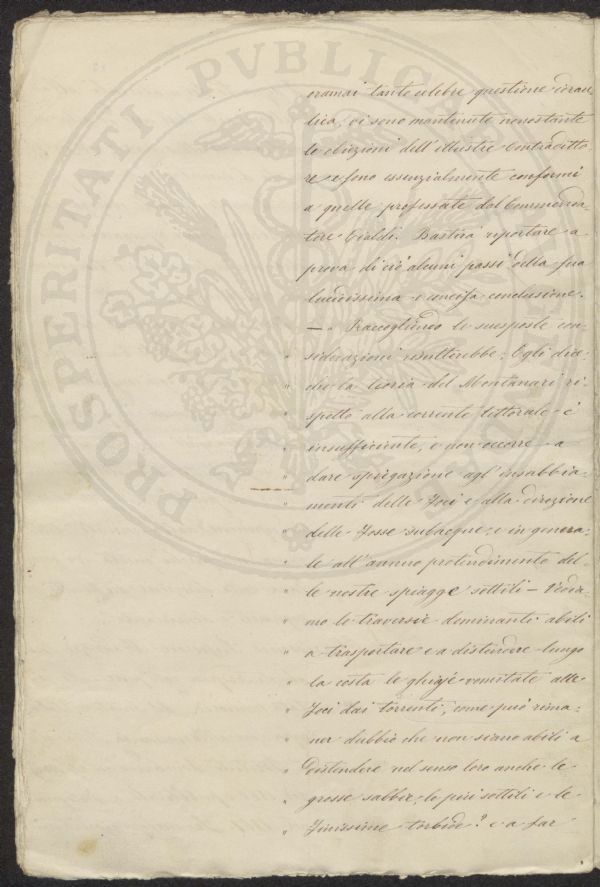 PROSPERITATI PUBLICAE
oramai tanto celebre questione idrau
lica, vi sono mantenute nonostante
le obiezioni dell'illustre Contraditto
re e sono essenzialmente conformi
a quelle professate dal Commenda
tore Cialdi. Bastirà riportare a
prova di ciò alcuni passi della sua
lucidissima e concisa conclusione.
— " Raccogliendo le suesposte con
" siderazioni resulterebbe: Egli dice
" che la teoria del Montanari ri
" spetto alla corrente littorale è
" insufficiente, e non occorre a
" dare spiegazione agl'insabbia
" menti delle Foci e alla direzione
" delle Fosse subacque, e in genera
" le all'annuo protendimento del
" le nostre spiagge sottili — Vedia
" mo le traversie dominanti abili
" a trasportare e a distendere lungo
" la costa le ghiaje vomitate alle
" Foci dai torrenti, come può rima
" ner dubbio che non siano abili a
" distendere nel senso loro anche le
" grosse sabbie, le più sottili e le
" Finissime torbide? e a far